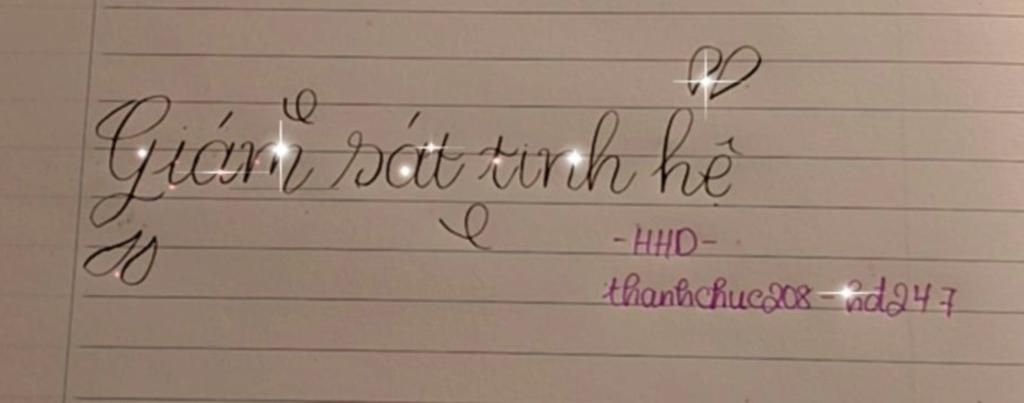 Giám sát tinh hệ
-HHD-
thanhchuc208-hd247